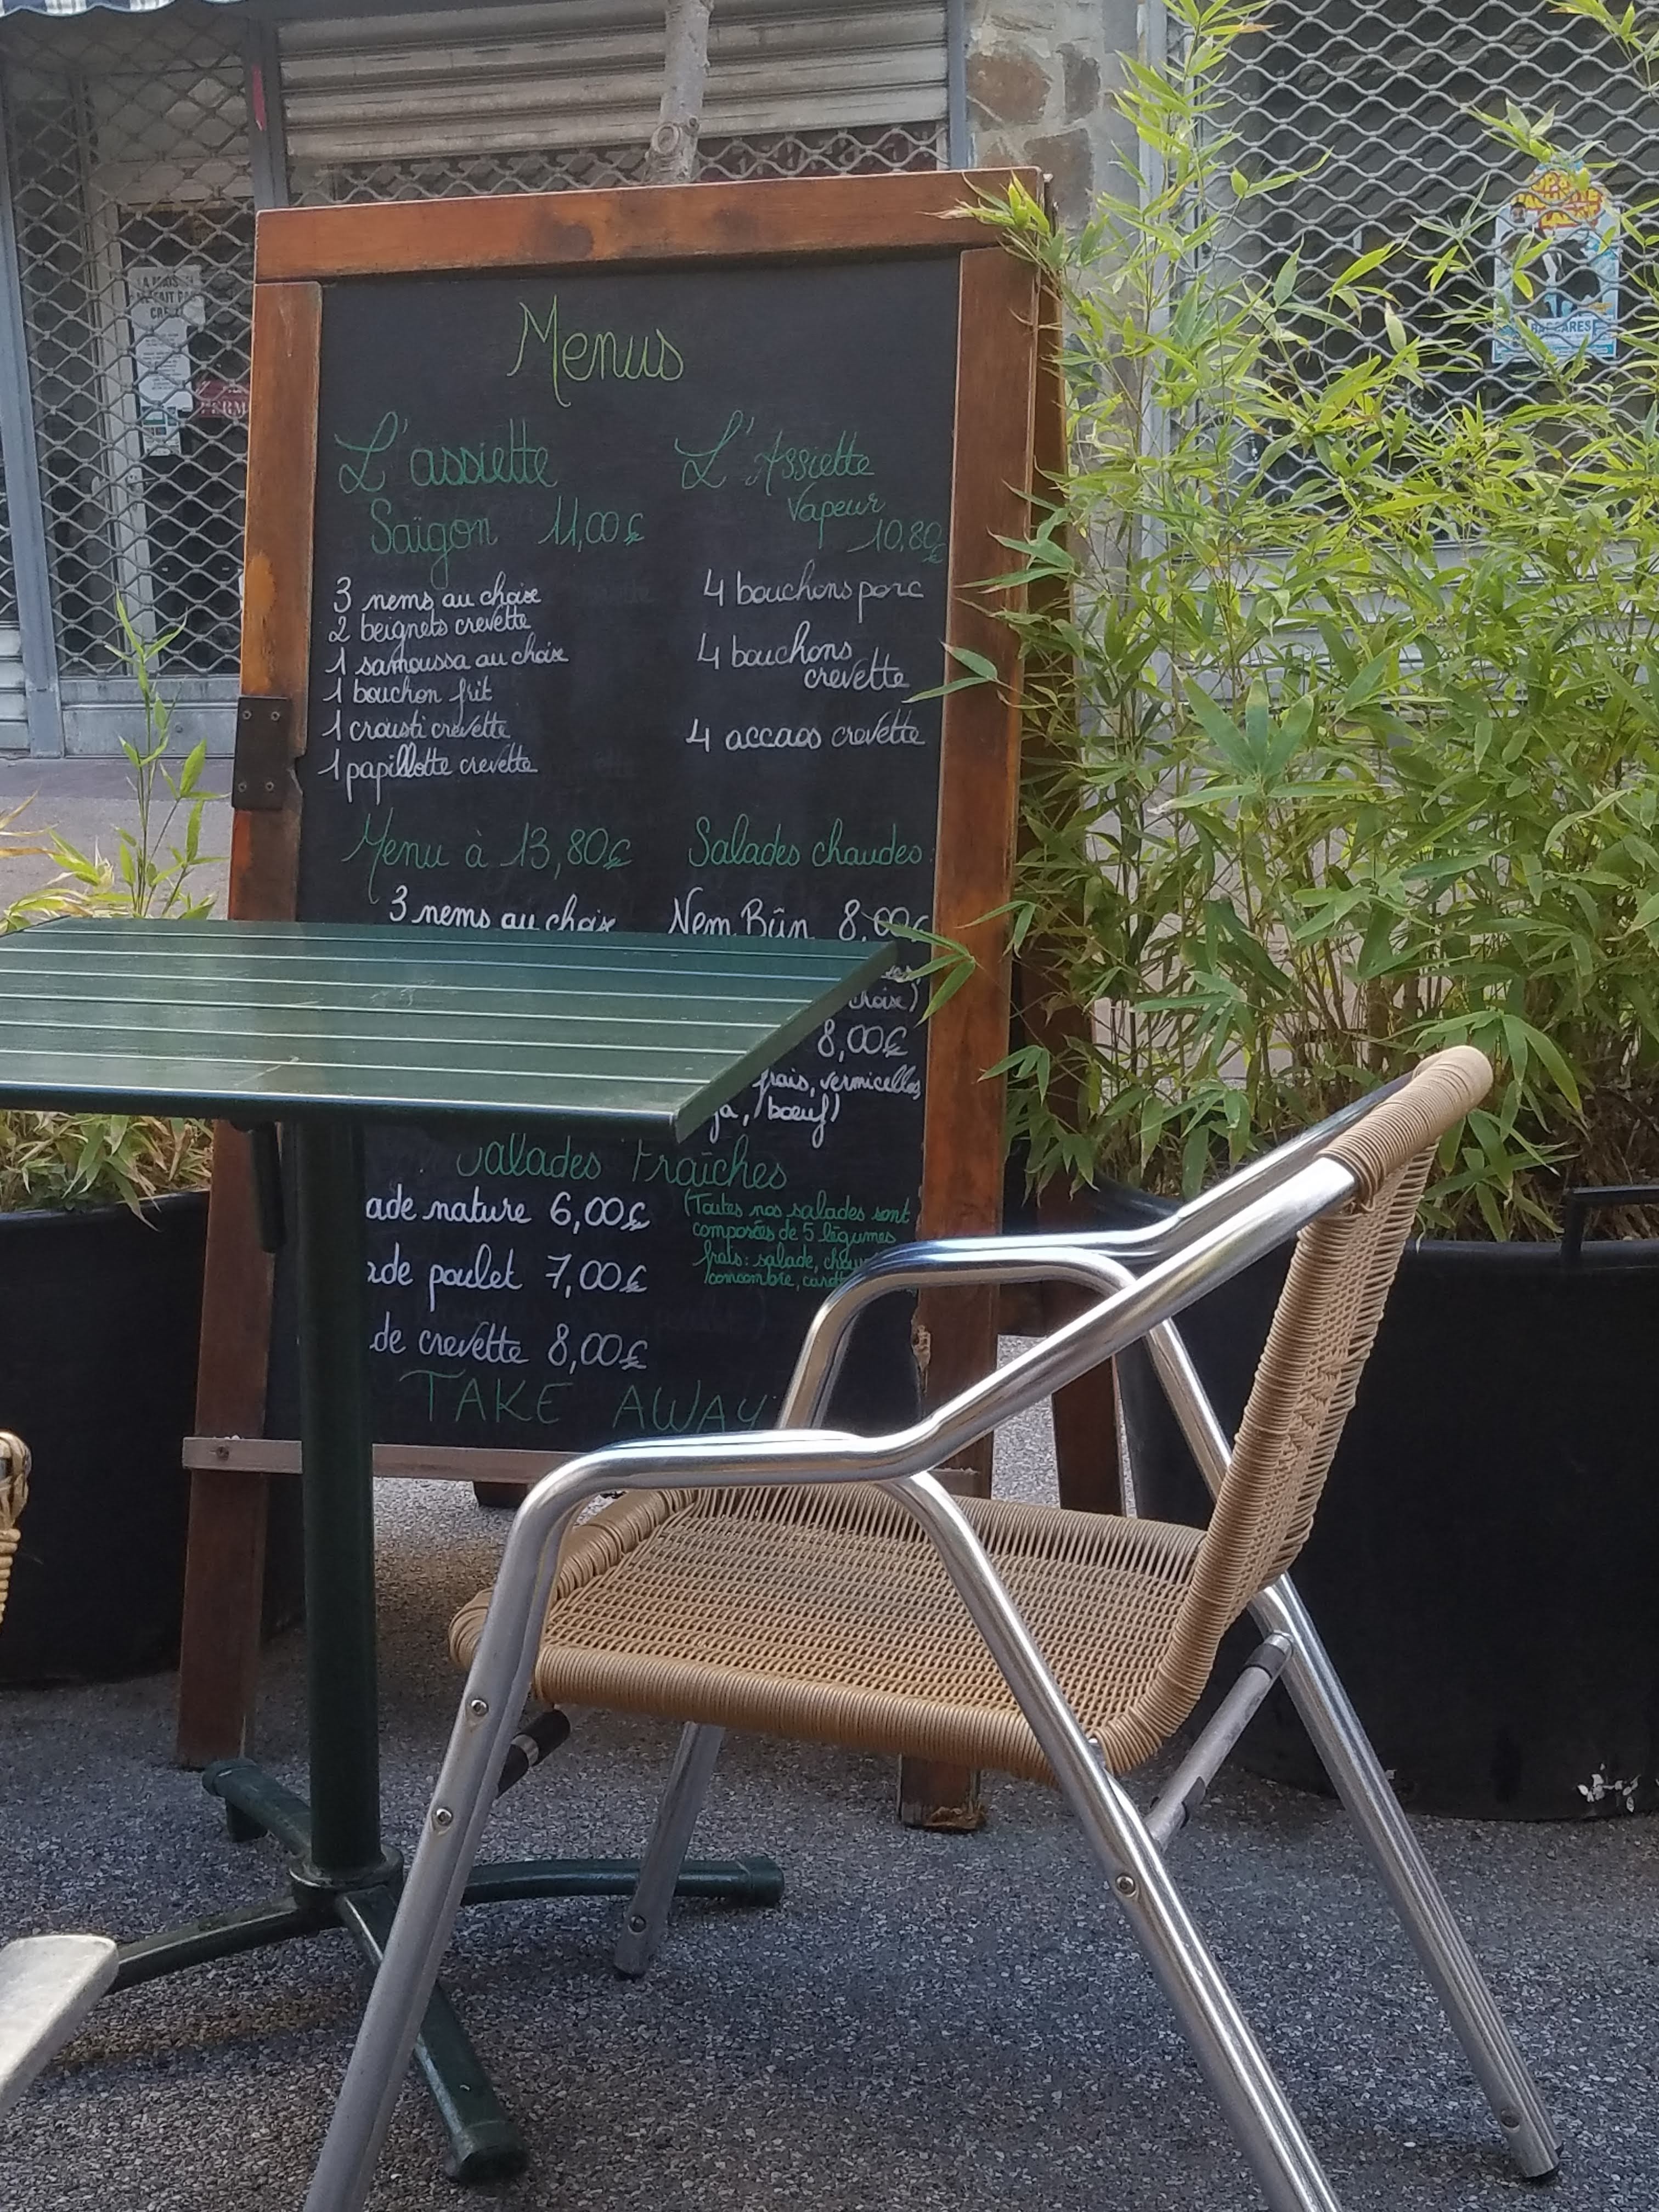 Menus
L'assiette
Saïgon 11,00€
3 nems au choix
2 beignets crevette
1 samoussa au choix
1 bouchon frit
1 crousti crevette
1 papillotte crevette
L'Assiette
Vapeur
10,80€
4 bouchons porc
4 bouchons
crevette
4 accaos crevette
Menu à 13,80€
3 nems au choix
Salades chaudes:
Nem Bûn 8,00€
choix)
8,00€
frais, vermicelles,
ja, boeuf)
Salades Fraîches
ade nature 6,00€
ade poulet 7,00€
de crevette 8,00€
(Toutes nos salades sont
composées de 5 légumes
frais: salade, chou
concombre, carott
TAKE AWAY
BARCARES